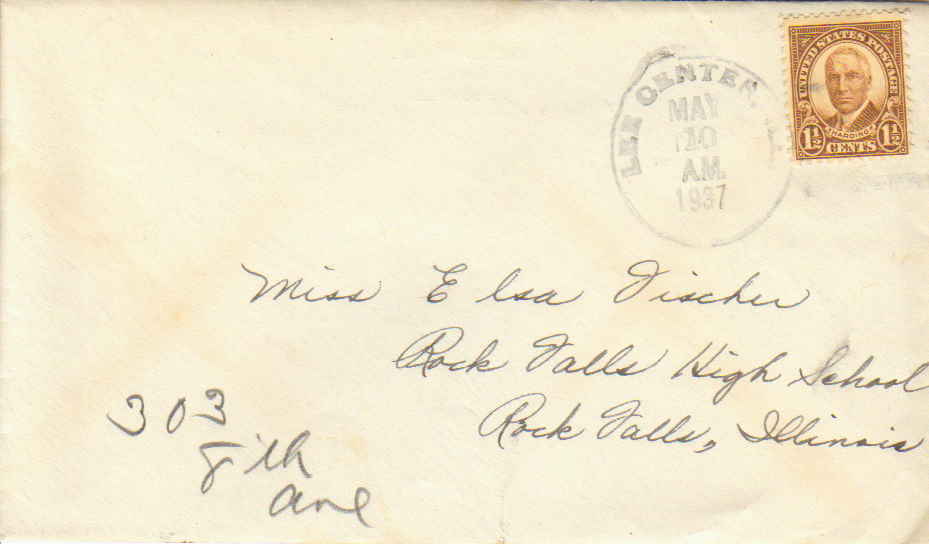 UNITED STATES POSTAGE
HARDING
1½ CENTS 1½
LEE CENTER,
MAY
10
A.M.
1937
Miss Elsa Fischer
Rock Falls High School
Rock Falls, Illinois
303
Ave